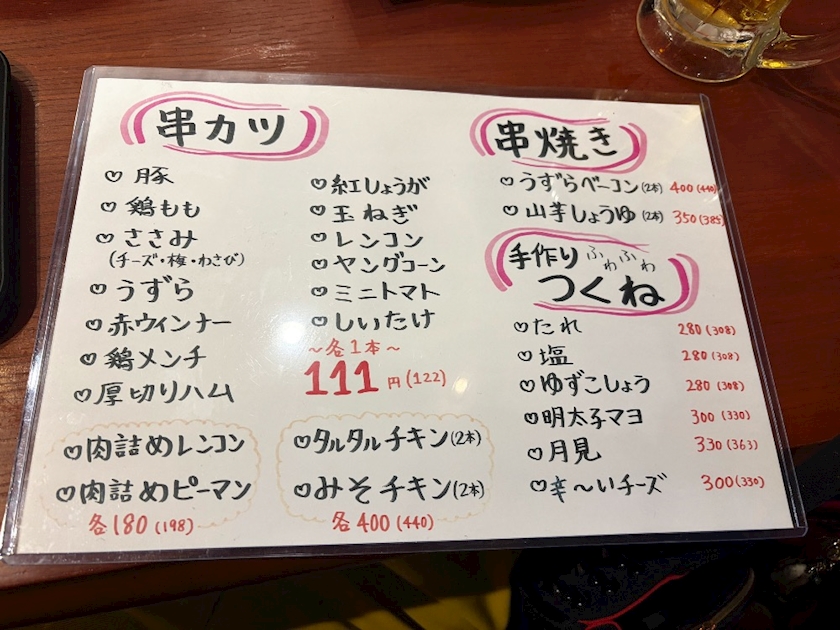 串カツ
♡ 豚
♡ 鶏もも
♡ ささみ
(チーズ・梅・わさび)
♡ うずら
♡ 赤ウィンナー
♡ 鶏メンチ
♡ 厚切りハム
♡ 紅しょうが
♡ 玉ねぎ
♡ レンコン
♡ ヤングコーン
♡ ミニトマト
♡ しいたけ
~各1本~
111円(122)
♡ 肉詰めレンコン
♡ 肉詰めピーマン
各180(198)
♡ タルタルチキン(2本)
♡ みそチキン(2本)
各400(440)
串焼き
♡ うずらベーコン(2本) 400(440)
♡ 山芋しょうゆ(2本) 350(385)
手作りふわふわ
つくね
♡ たれ 280(308)
♡ 塩 280(308)
♡ ゆずこしょう 280(308)
♡ 明太子マヨ 300(330)
♡ 月見 330(363)
♡ 辛~いチーズ 300(330)